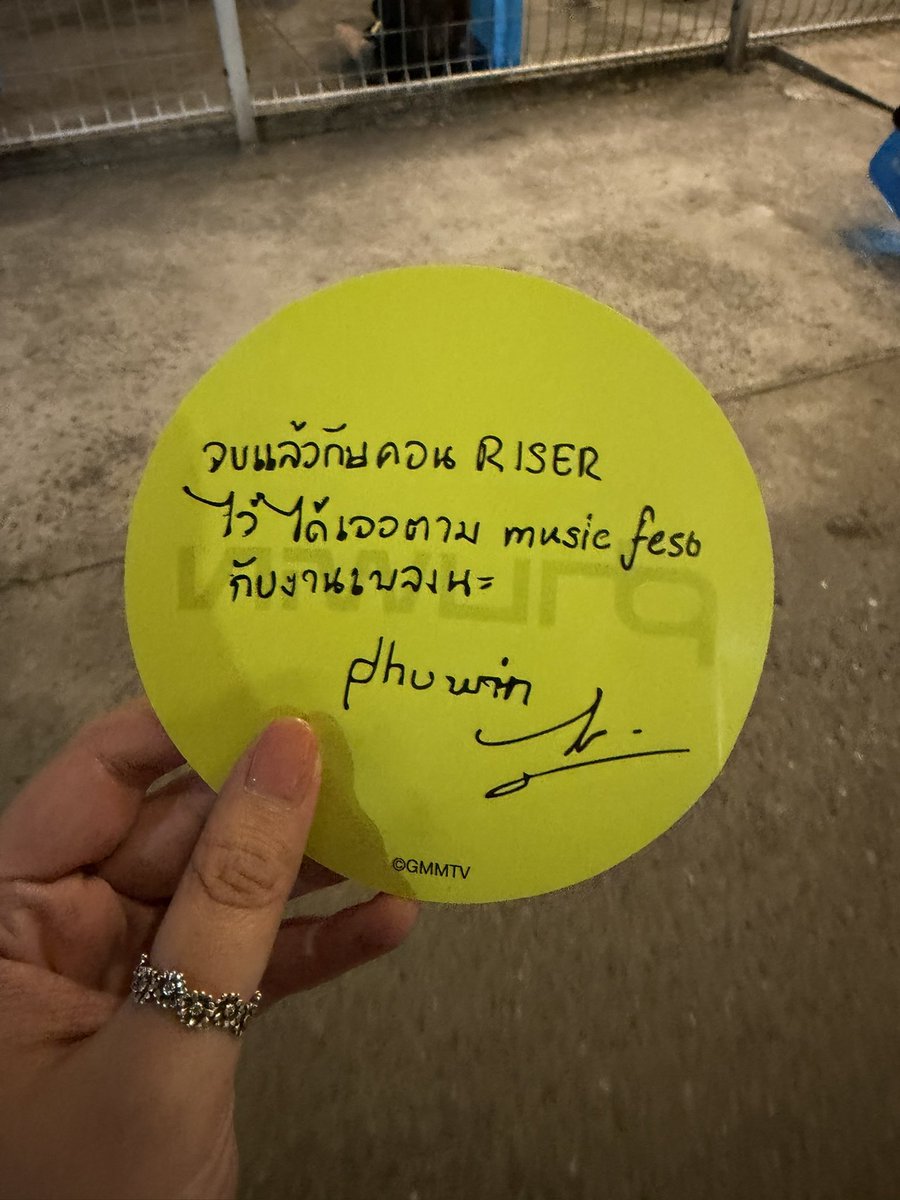 จบแล้วกับคอน RISER
ไว้ได้เจอตาม music fest
กับงานเพลงนะ
phuwin
©GMMTV